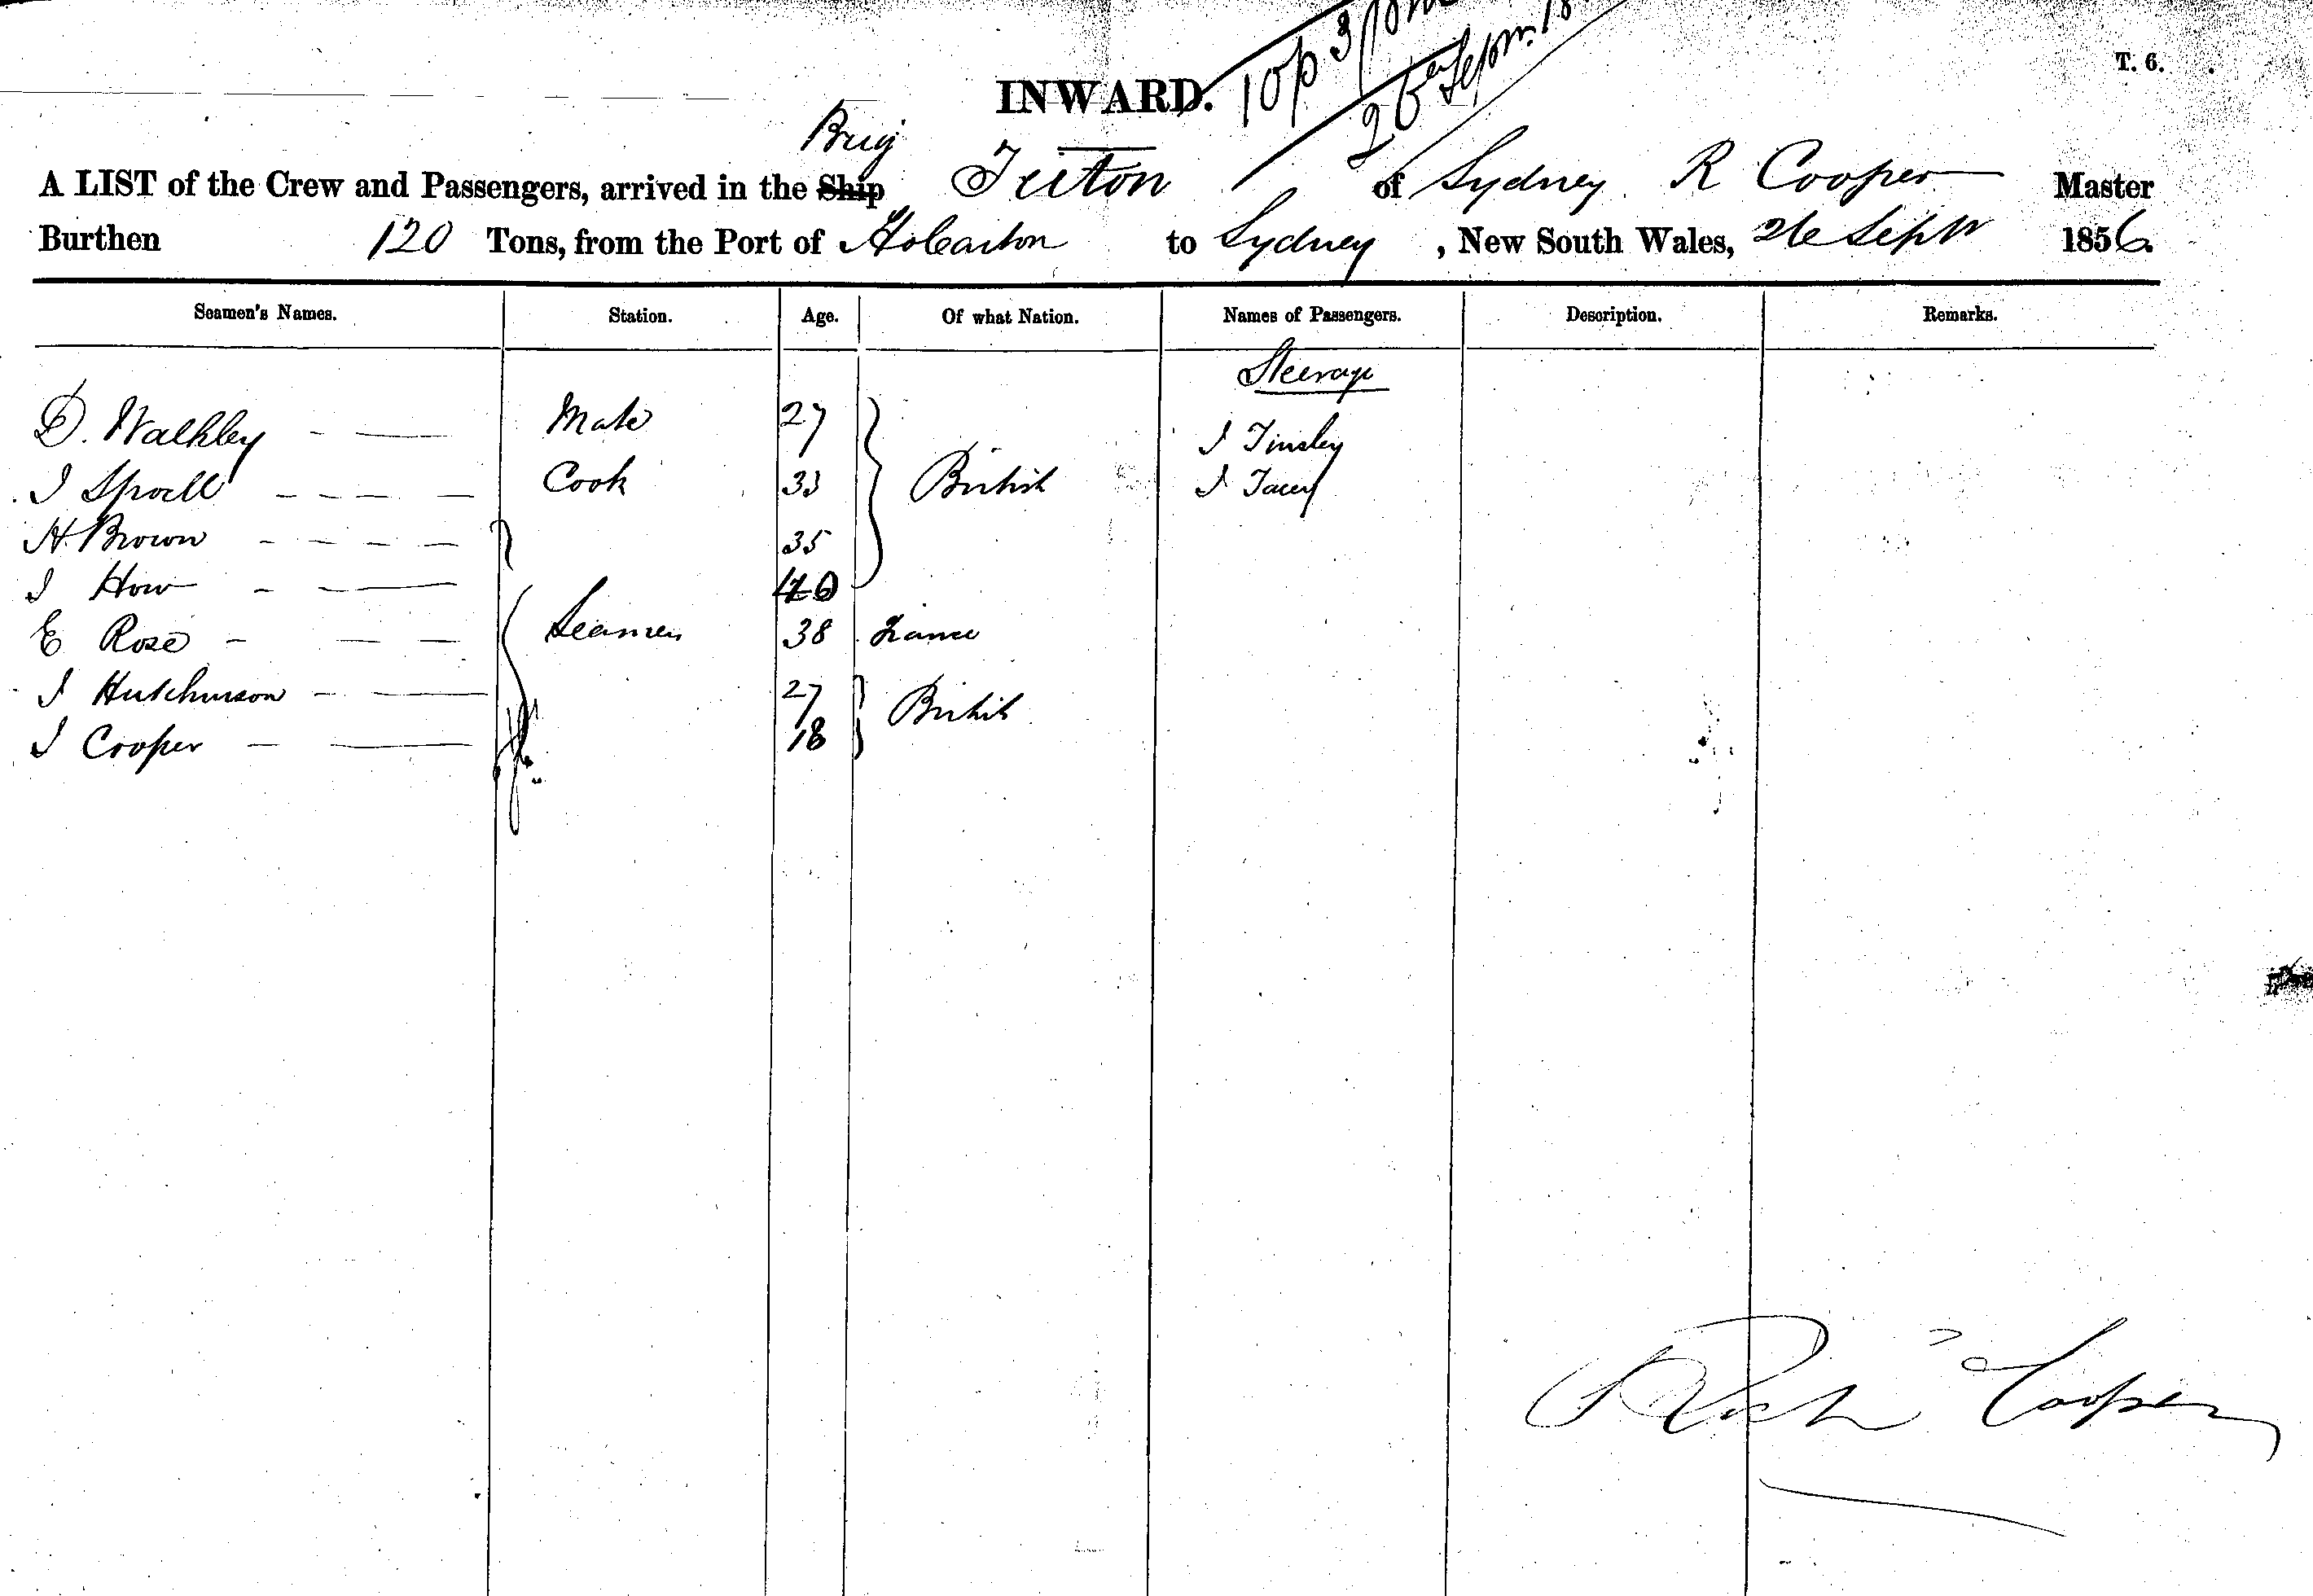 T. 6.
INWARD.
26th Septm.
Brig
A LIST of the Crew and Passengers, arrived in the Ship Triton of Sydney R Cooper Master
Burthen 120 Tons, from the Port of Hobarton to Sydney, New South Wales, 26 Septr 1856.
Seamen's Names. Station. Age. Of what Nation. Names of Passengers. Description. Remarks.
Steerage
D. Walkley Mate 27 J Tinsley
J Sproll Cook 33 British J Tacey
H. Brown 35
J How 40
E Rose Seamen 38 France
J Hutchinson 27 British
J Cooper 18
Richd Cooper